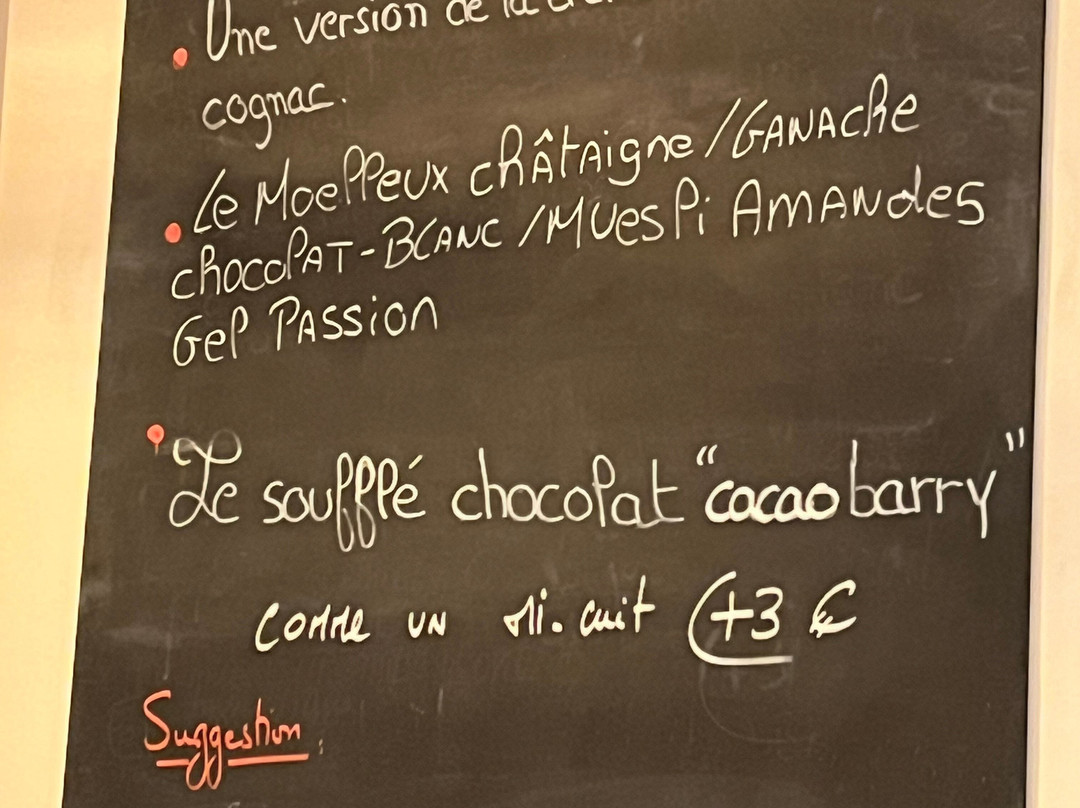 Une version de la
cognac.
Le Moelleux châtaigne/GANACHE
chocolat-BLANC/MUESLi AMANdes
Gel PASSion
Le soufflé chocolat "cacao barry"
comme un mi.cuit (+3 €
Suggestion :